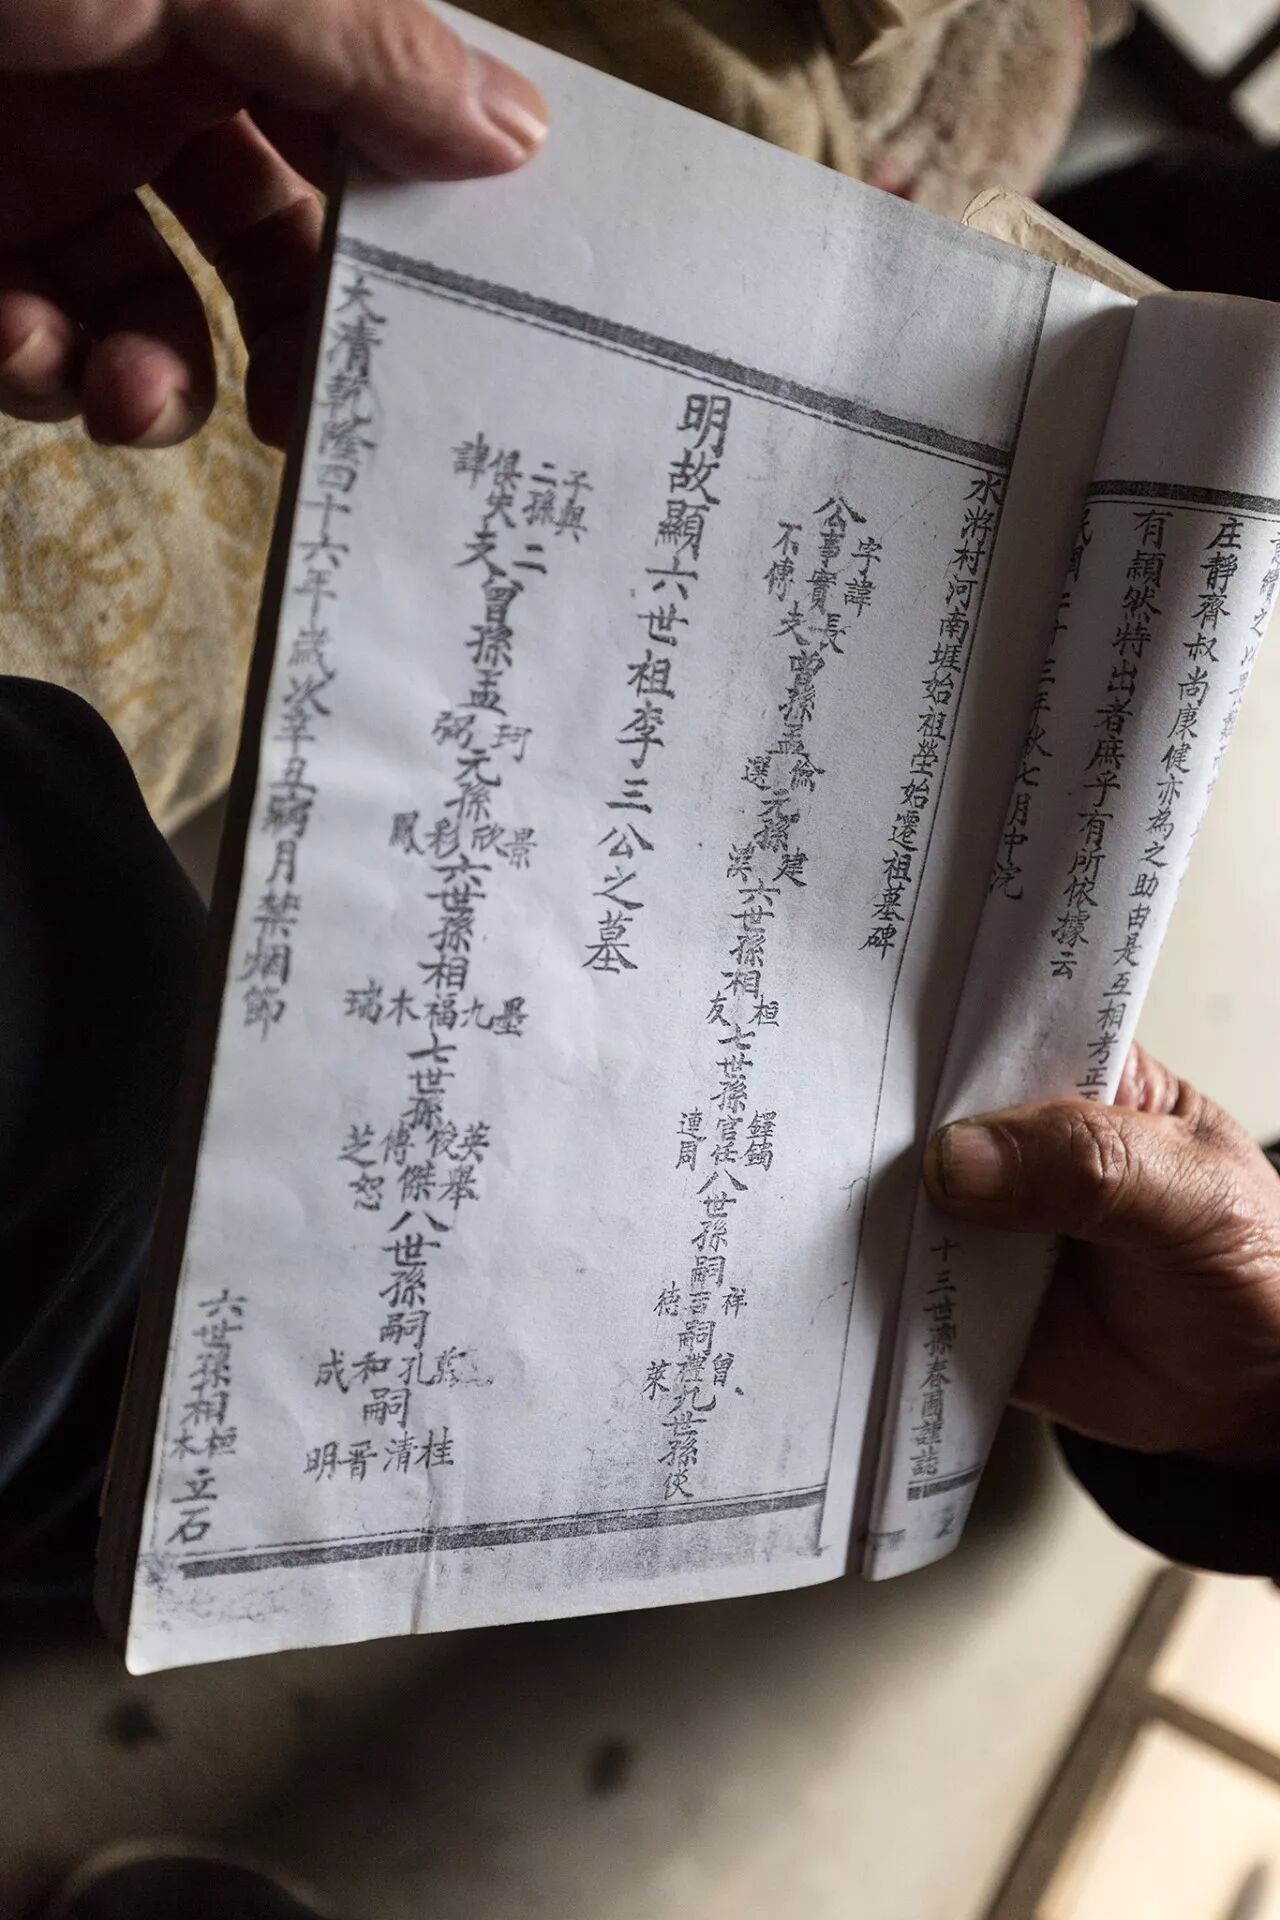 庄靜齊叔尚康健亦為之助由是互相考正
有顯然特出者庶乎有所依據云
民國二十三年秋七月中浣
十三世孫春圃謹誌
水溝村河南堐始祖塋始遷祖墓碑
公字諱事實不傳長支曾孫孟倫選元孫建漢六世孫相桓友七世孫鐸鐲官任連周八世孫嗣祥吉德嗣曾禮萊九世孫俊
明故顯六世祖李三公之墓
子與二孫俱失諱二支曾孫孟珂弼元孫景欣彩鳳六世孫相墨九福木瑞七世孫英俊傅芝舉傑恕八世孫嗣孔和成嗣桂清晋明
大清乾隆四十六年歲次辛丑病月禁烟節
六世孫相桓木立石